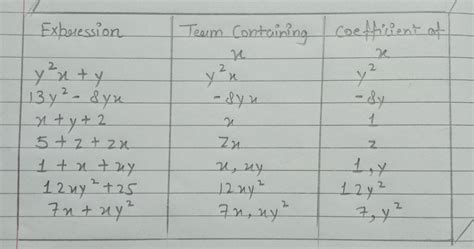 Expression Term Containing x Coefficient of x
y²x + y y²x y²
13y² - 8yx -8yx -8y
x + y + 2 x 1
5 + z + zx zx z
1 + x + xy x, xy 1, y
12xy² + 25 12xy² 12y²
7x + xy² 7x, xy² 7, y²